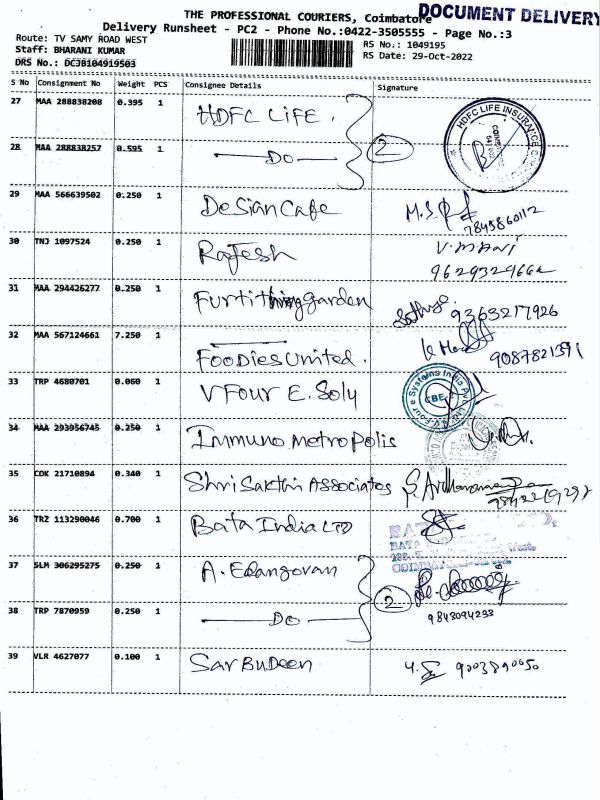 THE PROFESSIONAL COURIERS, Coimbatore
DOCUMENT DELIVERY
Delivery Runsheet - PC2 - Phone No.:0422-3505555 - Page No.:3
Route: TV SAMY ROAD WEST
RS No.: 1049195
Staff: BHARANI KUMAR
RS Date: 29-Oct-2022
DRS No.: DCJB104919503
S No Consignment No Weight PCS Consignee Details Signature
27 MAA 288838208 0.395 1 HDFC LIFE.
HDFC LIFE INSURANCE
28 MAA 288838257 0.595 1 Do 2
29 MAA 566639502 0.250 1 Desian Cafe M.S. 7845860112
30 TNJ 1097524 0.250 1 Rajesh V. Mani
9629329662
31 MAA 294426277 0.250 1 garden 9363217926
32 MAA 567124661 7.250 1 Foodies United. 9087821391
33 TRP 4680701 0.060 1 V Four E. Soly
CBE
34 MAA 293956745 0.250 1 Immuno Metropolis
35 COK 21710894 0.340 1 Shri Sakthi Associates
36 TRZ 113290046 0.700 1 Bata India LTD
BATA
37 SLM 306295275 0.250 1 A. Elangovan
38 TRP 7870959 0.250 1 Do 2 9843094233
39 VLR 4627077 0.100 1 Sarbudeen 9003890050